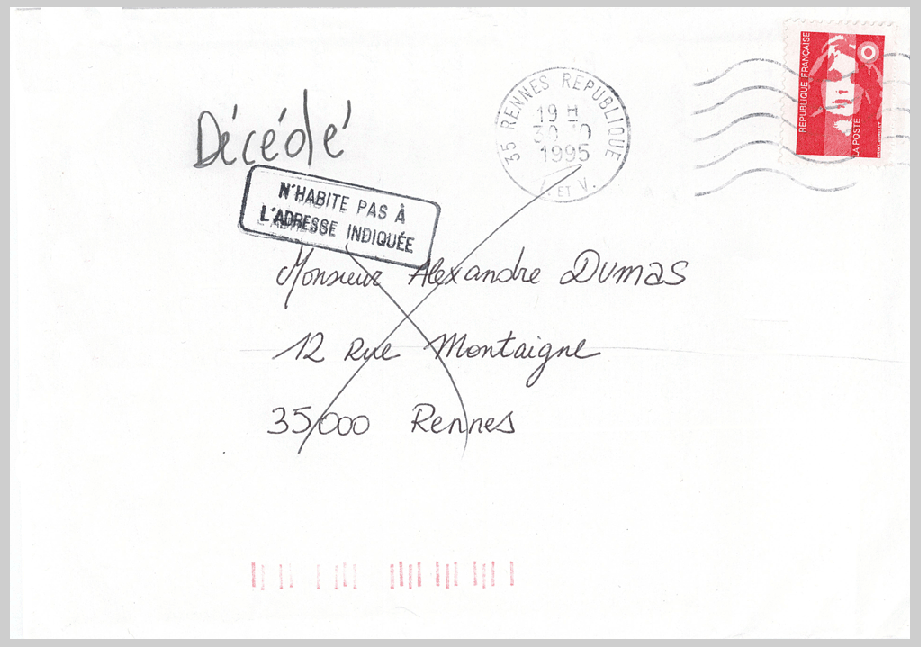 Décédé
N'HABITE PAS À
L'ADRESSE INDIQUÉE
35 RENNES REPUBLIQUE
19 H
30-10
1995
I. ET V.
REPUBLIQUE FRANÇAISE
LA POSTE
Monsieur Alexandre Dumas
12 Rue Montaigne
35000 Rennes